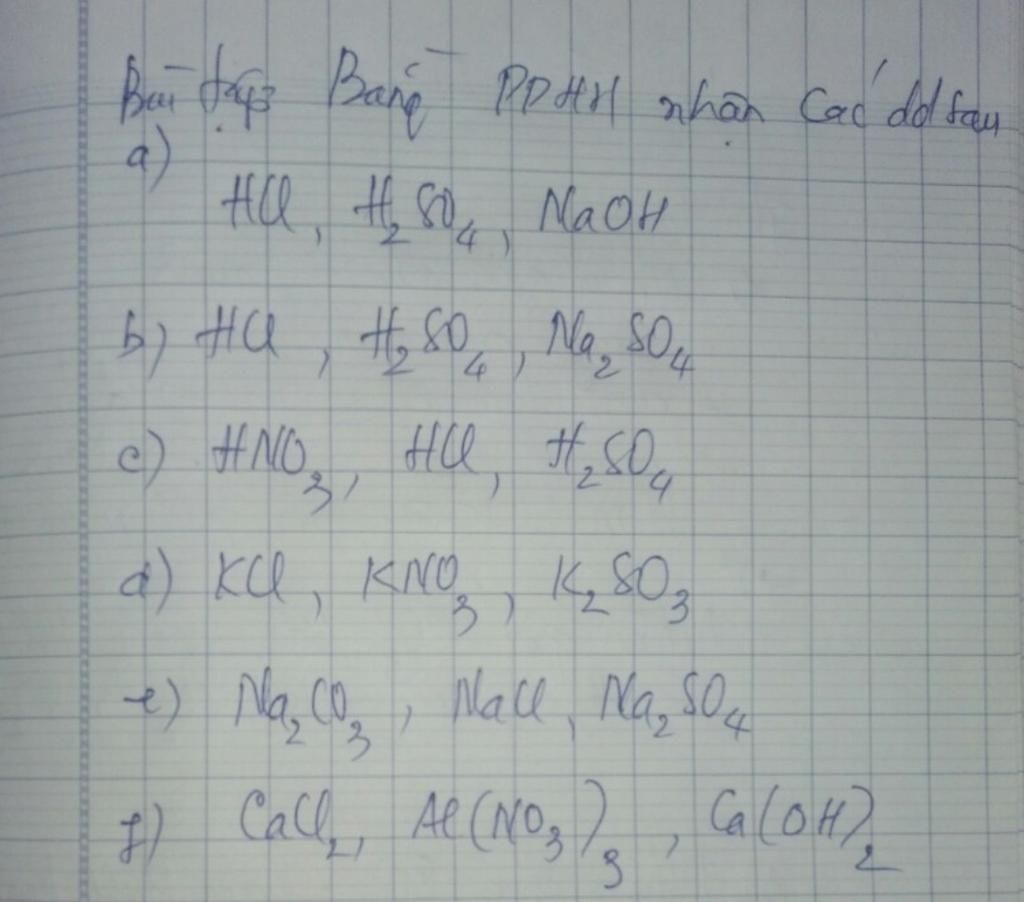 Bài tập: Bằng PPHH nhận các dd sau
a)
HCl, H₂SO₄, NaOH
b) HCl, H₂SO₄, Na₂SO₄
c) HNO₃, HCl, H₂SO₄
d) KCl, KNO₃, K₂SO₃
e) Na₂CO₃, NaCl, Na₂SO₄
f) CaCl₂, Al(NO₃)₃, Ca(OH)₂